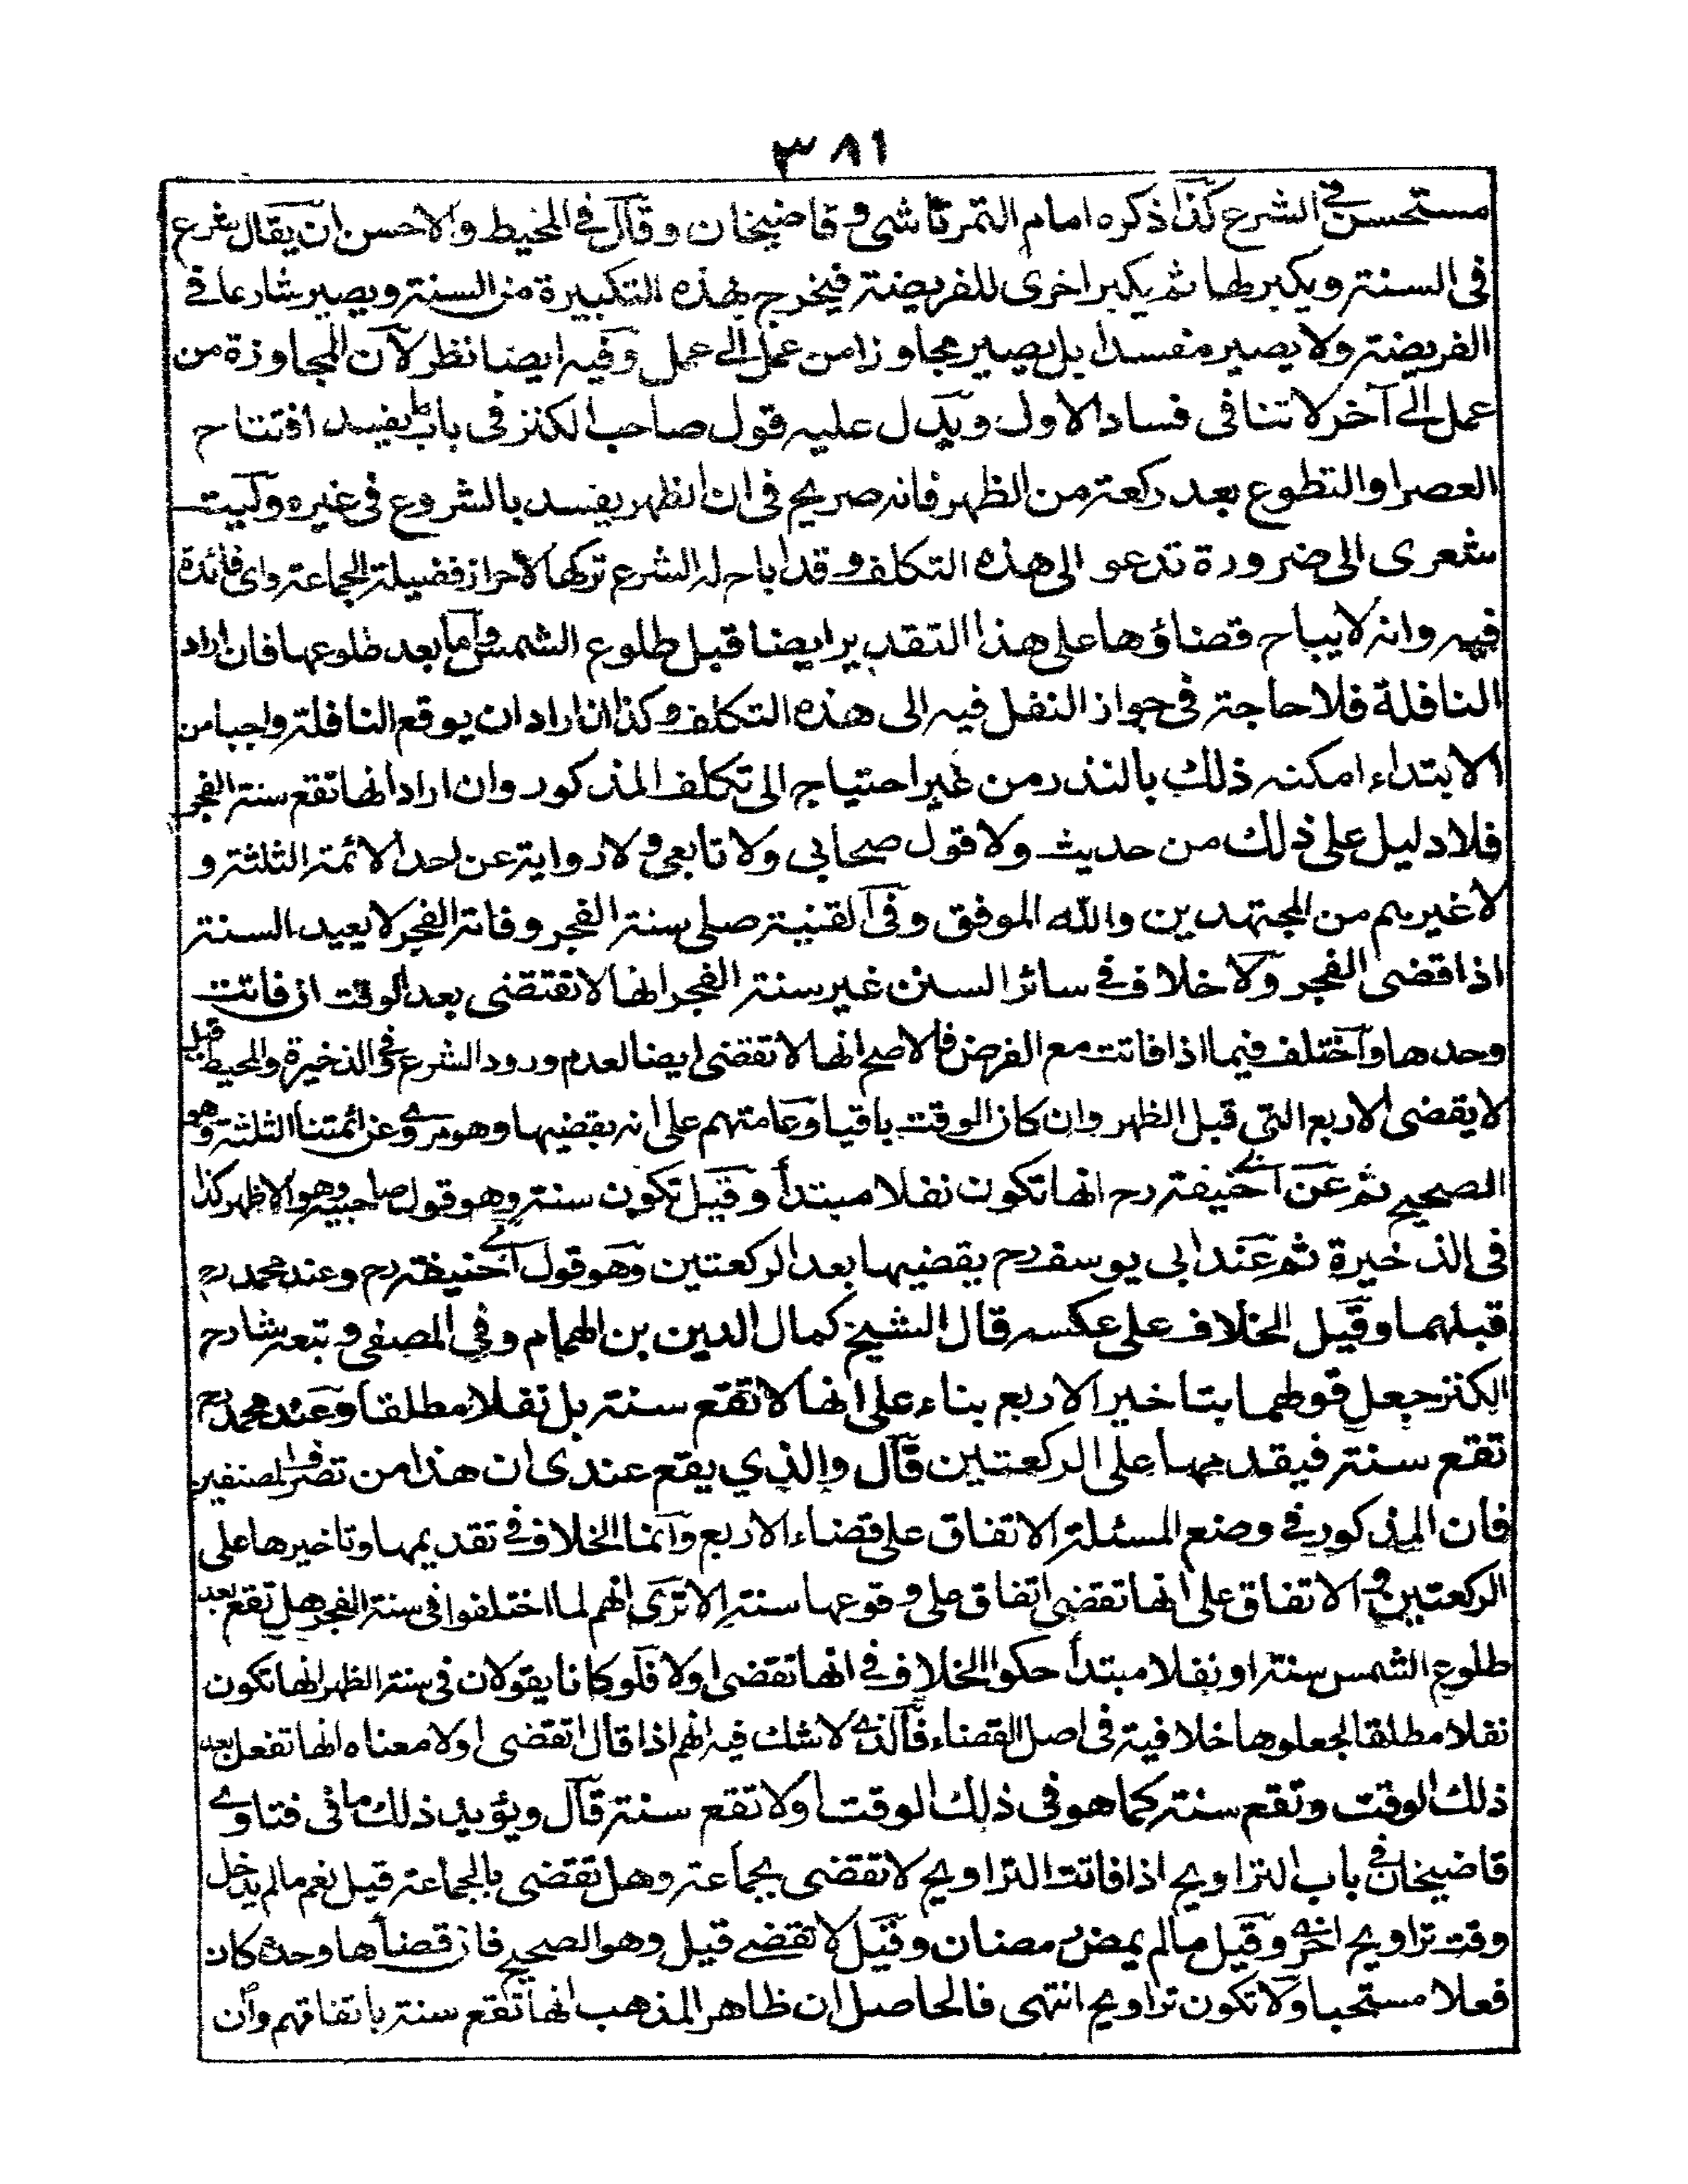 ٣٨١
مستحسن فى الشرع كذا ذكره امام التمرتاشى و قاضيخان وقال فى المحيط والاحسن ان يقال يشرع
فى السنة ويكبر لها ثم يكبر اخرى للفريضة فيخرج بهذه التكبيرة من السنة ويصير شارعا فى
الفريضة ولا يصير مفسدا بل يصير مجاوزا من عمل الى عمل وفيه ايضا نظر لان المجاوزة من
عمل الى آخر لا تنافى فساد الاول ويدل عليه قول صاحب الكنز فى باب ما يفسد افتتاح
العصر او التطوع بعد ركعة من الظهر فانه صريح فى ان الظهر يفسد بالشروع فى غيره وليت
شعرى الى ضرورة تدعو الى هذه التكلف وقد اباح له الشرع تركها لاحراز فضيلة الجماعة واى فائدة
فيه وانه لا يباح قضاؤها على هذا التقدير ايضا قبل طلوع الشمس واما بعد طلوعها فان اراد
النافلة فلا حاجة فى جواز النفل فيه الى هذه التكلف وكذا ان اراد ان يوقع النافلة واجبا من
الابتداء امكنه ذلك بالنذر من غير احتياج الى تكلف المذكور وان اراد انها تقع سنة الفجر
فلا دليل على ذلك من حديث ولا قول صحابى ولا تابعى ولا رواية عن احد الائمة الثلثة و
لا غيرهم من المجتهدين والله الموفق وفى القنية صلى سنة الفجر وفاته الفجر لا يعيد السنة
اذا قضى الفجر ولا خلاف فى سائر السنن غير سنة الفجر انها لا تقتضى بعد الوقت ان فاتت
وحدها واختلف فيما اذا فاتت مع الفرض فالاصح انها لا تقضى ايضا لعدم ورود الشرع فى الذخيرة والمحيط قيل
لا يقضى الاربع التى قبل الظهر وان كان الوقت باقيا وعامتهم على انه يقضيها وهو مروى عن ائمتنا الثلثة وهو
الصحيح ثم عن ابى حنيفة رح انها تكون نفلا مبتدأ وقيل تكون سنة وهو قول صاحبيه وهو الاظهر كذا
فى الذخيرة ثم عند ابى يوسف رح يقضيها بعد الركعتين وهو قول ابى حنيفة رح وعند محمد رح
قبلهما وقيل الخلاف على عكسه قال الشيخ كمال الدين بن الهمام وفى المصفى وتبعه شارح
الكنز جعل قولهما بتاخير الاربع بناء على انها لا تقع سنة بل نفلا مطلقا وعند محمد رح
تقع سنة فيقدمها على الركعتين قال والذي يقع عندى ان هذا من تصرف المصنفين
فان المذكور فى وضع المسئلة الاتفاق على قضاء الاربع وانما الخلاف فى تقديمها وتاخيرها على
الركعتين والاتفاق على انها تقضى اتفاق على وقوعها سنة الا ترى انهم لما اختلفوا فى سنة الفجر هل تقع بعد
طلوع الشمس سنة او نفلا مبتدأ حكوا الخلاف فى انها تقضى اولا فلو كانا يقولان فى سنة الظهر انها تكون
نفلا مطلقا لجعلوها خلافية فى اصل القضاء فالذى لا شك فيه انهم اذا قال اتقضى اولا معناه انها تفعل بعد
ذلك الوقت وتقع سنة كما هو فى ذلك الوقت اولا تقع سنة قال ويؤيد ذلك ما فى فتاوى
قاضيخان فى باب التراويح اذا فاتت التراويح لا تقضى بجماعة وهل تقضى بالجماعة قيل نعم ما لم يدخل
وقت تراويح اخرى وقيل ما لم يمض رمضان وقيل لا تقضى قيل وهو الصحيح فان قضاها وحده كان
فعلا مستحبا ولا تكون تراويح انتهى فالحاصل ان ظاهر المذهب انها تقع سنة باتفاقهم وان